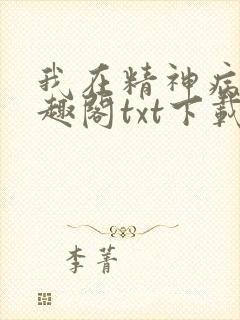 我在精神病
趣阁txt下载
李菁